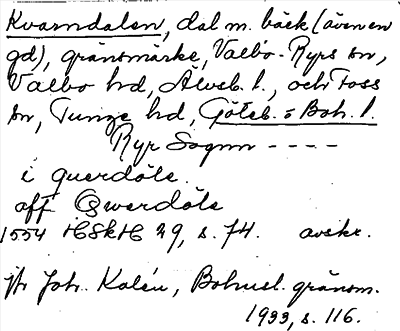 Kvarndalen, dal m. bäck (även en
gd), gränsmärke, Valbo-Ryrs sn,
Valbo hd, Älvsb. l., och Foss
sn, Tunge hd, Göteb. o Boh. l.
Ryr Sognn ----
i querdöle.
aff Qwerdöle
1554 HSkH 29, s. 74. avskr.
Jfr Joh. Kalén, Bohusl. gränsm.
1933, s. 116.